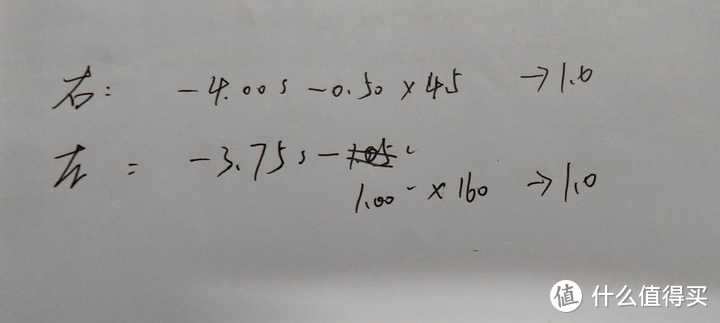 右: -4.00s -0.50×45 →1.0
左: -3.75s -
1.00 ×160 →1.0
值 什么值得买